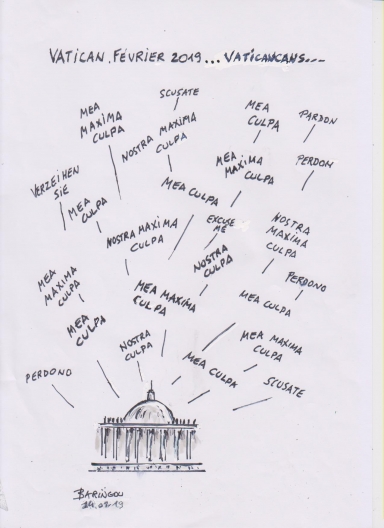 VATICAN. FÉVRIER 2019... VATICANCANS...
SCUSATE
MEA
MAXIMA
CULPA
MEA
CULPA
PARDON
NOSTRA MAXIMA
CULPA
MEA
MAXIMA
CULPA
PERDON
VERZEIHEN
SIE
MEA
CULPA
MEA CULPA
EXCUSE
ME
NOSTRA MAXIMA
CULPA
NOSTRA
MAXIMA
CULPA
NOSTRA
CULPA
MEA
MAXIMA
CULPA
PERDONO
MEA MAXIMA
CULPA
MEA CULPA
MEA
CULPA
NOSTRA
CULPA
MEA MAXIMA
CULPA
MEA CULPA
PERDONO
SCUSATE
BARINGOU
24.02.19